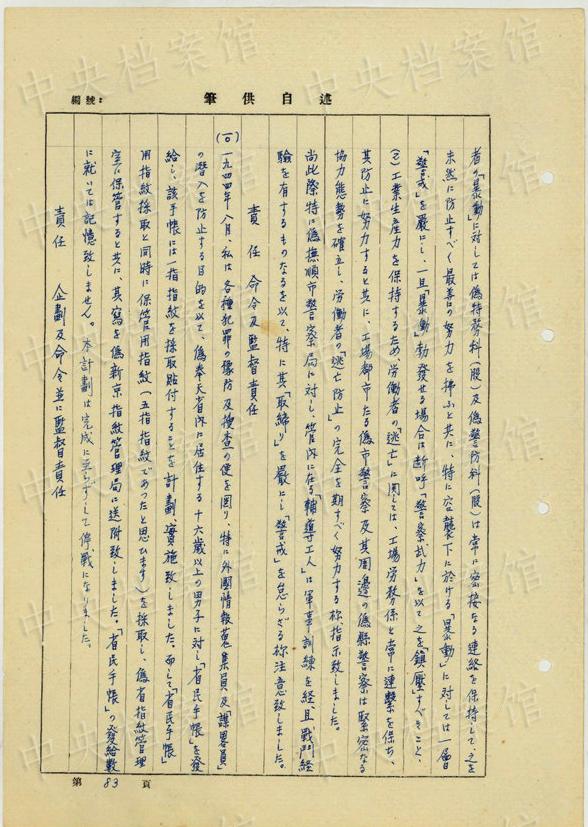 述自供筆
編號:
者の「暴動」に対しては偽特務科(股)及偽警防科(股)は常に密接なる連絡を保持して、之を
未然に防止すべく最善の努力を拂ふと共に、特に空襲下に於ける「暴動」に対しては一層
「警戒」を厳にし、一旦「暴動」勃発せる場合は断呼「警察武力」を以て之を「鎮壓」すべきこと、
(ヒ)工業生産力を保持するため、労働者の「逃亡」に関しては、工場労務係と常に連繫を保ち、
其防止に努力すると共に、工場都市たる偽市警察及其周邊の偽縣警察は緊密なる
協力態勢を確立し、労働者の「逃亡防止」の完全を期すべく努力する様指示致しました。
尚此際特に偽撫順市警察局に対し、管内に在る「輔導工人」は軍事訓練を経且戦鬥経
驗を有するものなるを以て、特に其「取締り」を厳にし「警戒」を怠らざる様注意致しました。
責任 命令及監督責任
(一〇)一九四四年八月、私は各種犯罪の豫防及捜查の便を図り、特に外國情報蒐集員及「謀畧員」
の潜入を防止する目的を以て、偽奉天省内に居住する十六歳以上の男子に対し「省民手帳」を發
給し、該手帳には一指指紋を採取貼付することを計劃實施致しました。而して「省民手帳」
用指紋採取と同時に保管用指紋(五指指紋であつたと思ひます)を採取し、偽省指紋管理
室に保管すると共に、其寫を偽新京指紋管理局に送附致しました。「省民手帳」の發給數
に就いては記憶致しません。本計劃は完成に至らずして停戦になりました。
責任 企劃及命令並に監督責任
第83頁
中央档案馆
中央档案馆
中央档案馆
中央档案馆